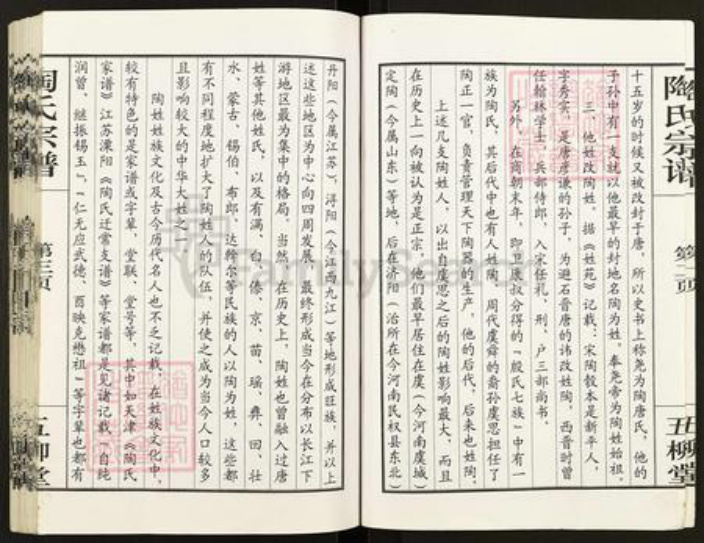 陶氏宗谱
第二页
五柳堂
十五岁的时候又被改封于唐，所以史书上称尧为陶唐氏，他的
子孙中有一支就以他最早的封地名陶为姓。奉尧帝为陶姓始祖。
三、他姓改陶姓。据《姓苑》记载：宋陶毂本是新平人，
字秀实，是唐彦谦的孙子，为避石晋唐的讳改姓陶，西晋时曾
任翰林学士，兵部侍郎，入宋任礼、刑、户三部尚书。
另外，在商朝末年，即卫康叔分得的「殷氏七族」中有一
族为陶氏，其后代中也有人姓陶。周代虞舜的裔孙虞思担任了
陶正一官，负责管理天下陶器的生产，他的后代，后来也姓陶。
上述几支陶姓人，以出自虞思之后的陶姓影响最大，而且
在历史上一向被认为是正宗。他们最早居住在虞（今河南虞城）
定陶（今属山东）等地，后在济阳（治所在今河南民权县东北）
丹阳（今属江苏），浔阳（今江西九江）等地形成旺族，并以上
述这些地区为中心向四周发展，最终形成当今在分布以长江下
游地区最为集中的格局。当然，在历史上，陶姓也曾融入过唐
姓等其他姓氏，以及有满、白、傣、京、苗、瑶、彝、回、壮
水、蒙古、锡伯、布郎、达斡尔等民族的人以陶为姓，这些都
有不同程度地扩大了陶姓人的队伍，并使之成为当今人口较多
且影响较大的中华大姓之一。
陶姓姓族文化及古今历代名人也不乏记载，在姓族文化中，
较有特色的是家谱或字辈，堂联、堂号等，其中如天津《陶氏
家谱》江苏溧阳《陶氏迁常支谱》等家谱都是见诸记载「自纯
润曾，继振锡玉」，「仁无应武德，酉映克懋祖」等字辈也都有
陶氏宗谱
第三页
五柳堂